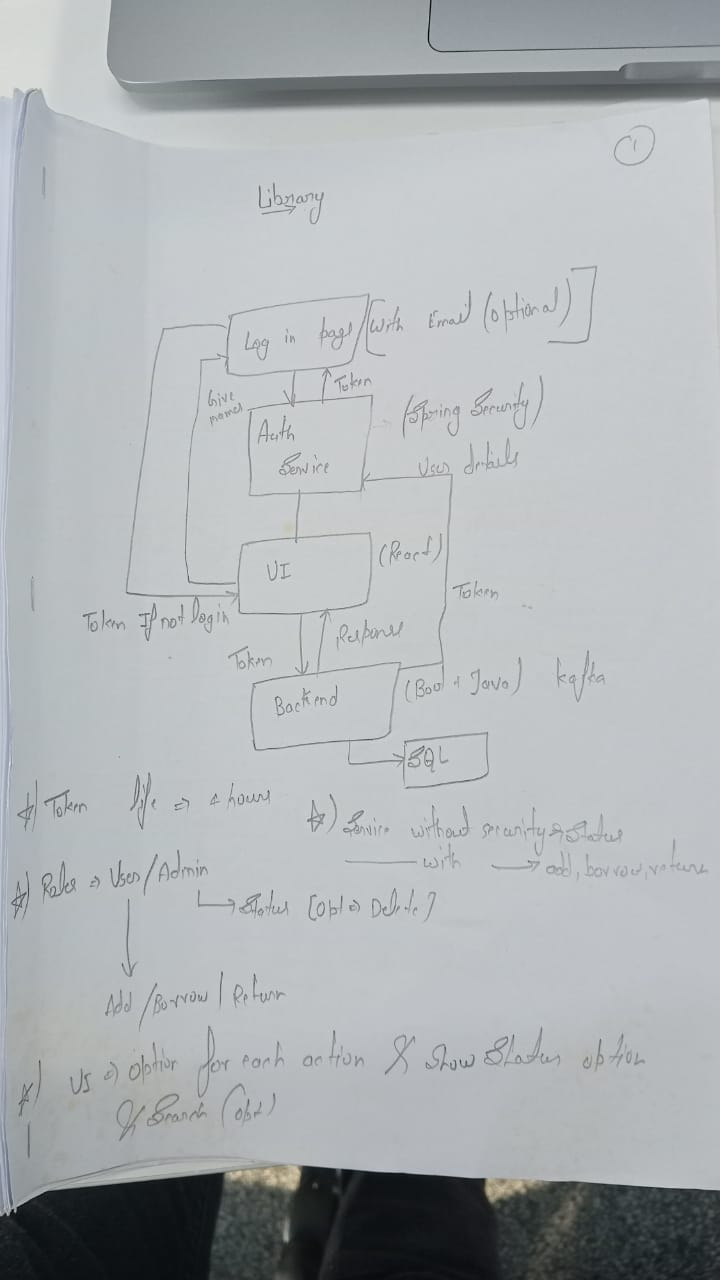 1
Library
Log in page [With Email (optional)]
Token
Give
Auth
Service
(Spring Security)
User details
UI
(React)
Token
Token If not login
Response
Token
Backend
(Boot + Java) kafka
SQL
*) Token life => hours
*) Service without security => Status
with → add, borrow, return
*) Roles => User/Admin
Status [Opt => Delete]
Add / Borrow / Return
*) option for each action & Show Status option
& Search (opt)